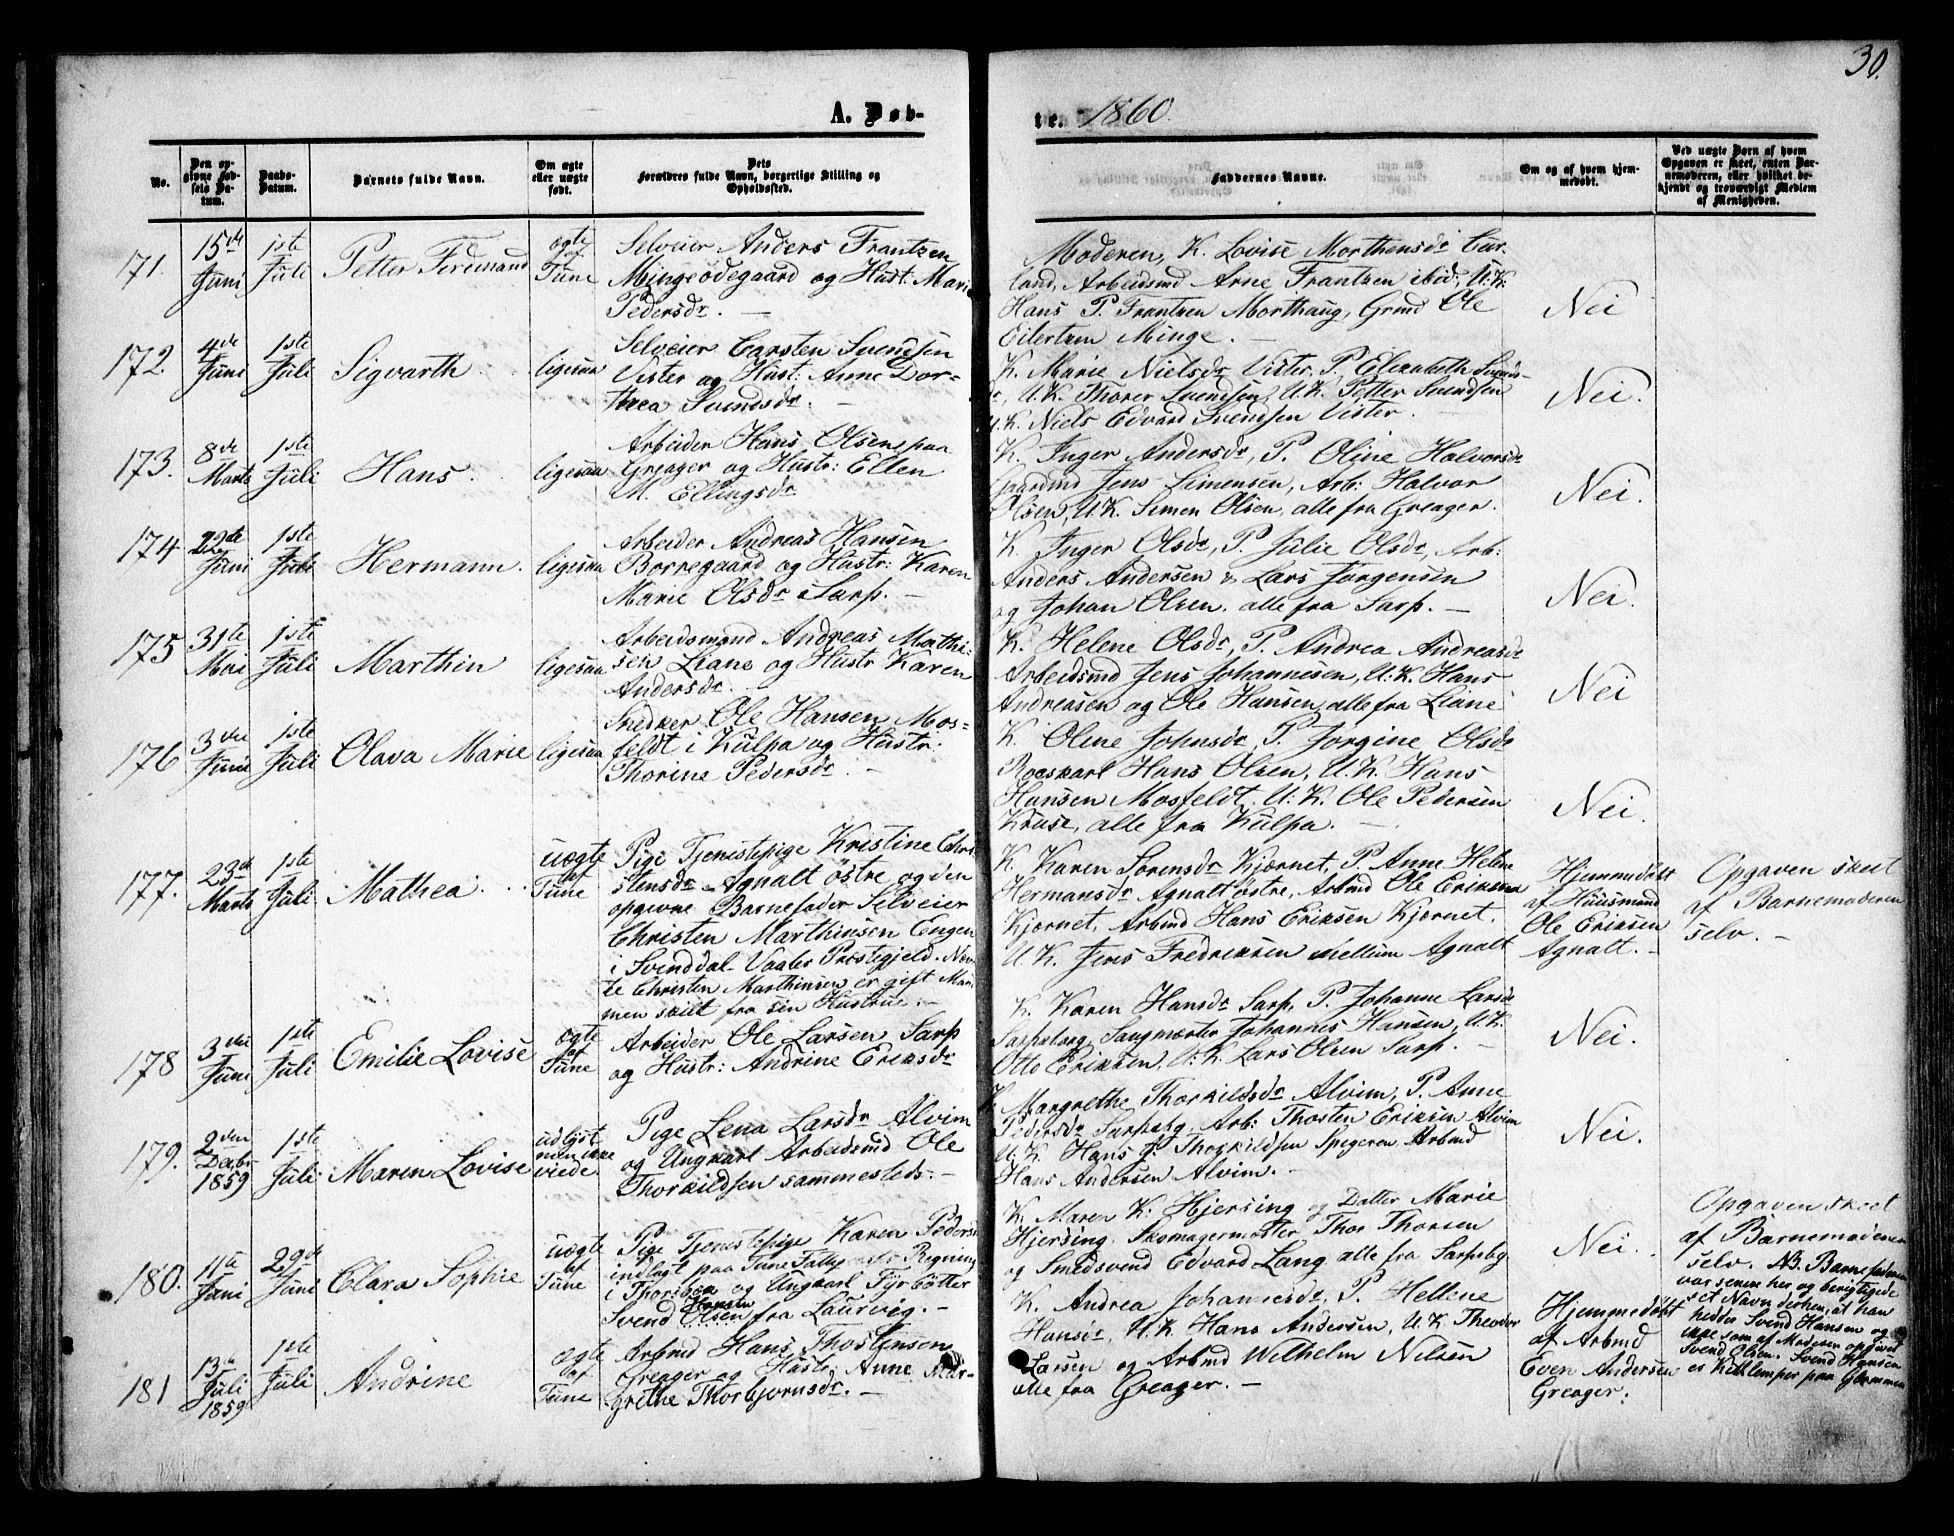 30.
A. Døb-
te. 1860.
No.
Den op-
givne Fød-
sels Da-
tum.
Daabs-
Datum.
Barnets fulde Navn.
Om ægte
eller uægte
født.
Dets
Forældres fulde Navn, borgerlige Stilling og
Opholdssted.
Faddernes Navne.
Om og af hvem hjem-
medøbt.
Ved uægte Børn af hvem
Opgaven er skeet, enten Bar-
nemoderen, eller hvilket be-
kjendt og troværdigt Medlem
af Menigheden.
171.
15de
Juni
1ste
Juli
Petter Ferdinand
ægte
af
Tune
Selveier Anders Frantzen
Mingeødegaard og Hust: Marie
Pedersdr. —
Moderen, K. Lovise Morthensdr Cur-
land, Arbeidsmd Arne Frantzen ibid:, U.K.
Hans P. Frantzen Morthaug, Grmd Ole
Eilertzen Minge. —
Nei
172.
4de
Juni
1ste
Juli
Sigvarth.
ligesaa
Selveier Carsten Svendsen
Vister og Hust: Anne Dor-
thea Svendsdr. —
K. Marie Nielsdr Vister, P. Elezabeth Svends-
dr, U.K. Thorer Svendsen, U.K. Petter Svendsen
U.K. Niels Edvard Svendsen Vister.
Nei.
173.
8de
Marts
1ste
Juli
Hans.
ligesaa
Arbeider Hans Olsen paa
Greager og Hustr: Ellen
M. Ellingsdr
K. Inger Andersdr, P. Oline Halvorsdr
Gaardmd Jens Simensen, Arb: Halvor
Olsen, U.K. Simen Olsen, alle fra Greager.
Nei.
174
22de
Juni
1ste
Juli
Hermann.
ligesaa
Arbeider Andreas Hansen
Borregaard og Hustr: Karen
Marie Olsdr Sarp. —
K. Inger Olsdr, P. Julie Olsdr, Arb:
Anders Andersen & Lars Jørgensen
og Johan Olsen. alle fra Sarp. —
Nei.
175
31te
Mai
1ste
Juli
Marthin
ligesaa
Arbeidsmand Andreas Marthi-
sen Liane og Hustr Karen
Andersdr. —
K. Helene Olsdr, P. Andrea Andreasdr
Arbeidsmd Jens Johannesen, U.K. Hans
Andreasen og Ole Hansen, alle fra Liane
Nei
176
3die
Juni
1ste
Juli
Olava Marie
ligesaa
Snedker Ole Hansen Mos-
feldt i Kulpa og Hustr:
Thorine Pedersdr. —
K. Oline Johnsdr, P. Jorgine Olsdr
Roeskarl Hans Olsen, U.K. Hans
Hansen Mosfeldt. U.K. Ole Pedersen
Kruse, alle fra Kulpa. —
Nei.
177.
23de
Marts
1ste
Juli
Mathea.
uægte
af
Tune
Pige Tjenistepige Kristine Chri-
stensdr Agnalt østre og den
opgivne Barnefader Selveier
Christen Marthinsen Engen
i Svinddal. Vaaler Præstegjeld. Nevn-
te Christen Marthinsen er gift Man
men skilt fra sin Hustrue. —
K. Karen Sørensdr Kjærnet, P. Anne Helene
Hermansdr Agnalt østre, Arbmd Ole Eriksen
Kjærnet, Arbmd Hans Eriksen Kjærnet.
U.K. Jens Fredriksen mellum Agnalt
Hjemmedøbt
af Huusmand
Ole Eriksen
Agnalt. —
Opgaven skeet
af Barnemoderen
selv. —
178
3die
Juni
1ste
Juli
Emilie Lovise
ægte
af
Tune
Arbeider Ole Larsen, Sarp
og Hustr: Andrine Eriksdr
K. Karen Hansdr Sarp, P. Johanne Larsdr
Sarpsborg, Saugmester Johannes Hansen, U.K.
Otto Eriksen, U.K. Lars Olsen Sarp. —
Nei.
179.
2den
Decbr
1859
1ste
Juli
Maren Lovise
udlyst
men ikke
viede
Pige Lena Larsdr Alvim
og Ungkarl Arbeidsmd Ole
Thorkildsen sammesteds. —
K. Margrethe Thorkildsdr Alvim, P. Anne
Pedersdr Sarpsbg, Arb: Thosten Eriksen Alvim
U.K. Hans J. Thorkildsen Spegeren Arbmd
Hans Andersen Alvim. —
Nei.
180.
11te
Juni
29de
Juni
Clara Sophie
uægte
af
Tune
Pige Tjenistepige Karen Pedersdr
indlagt paa Tune Regning
i Thorsbæk og Ungkarl Fyrbøtter
Hansen
Svend Olsen fra Laurvig. —
K. Maren K. Hjersing og Datter Marie
Hjersing. Skomagermester Thor Thorsen
og Smedsvend Edvard Lang alle fra Sarpsbg
Nei.
Opgaven skeet
af Barnemoderen
selv. NB. Barnefaderen
var senere her og berigtigede
set Navn derhen, at han
hedder Svend Hansen og
ikke som af Moderen opgivet
Svend Olsen. Svend Hansen
er Kittlemper paa Glommen
181
13de
Juli
1859
1ste
Juli
Andrine
ægte
af
Tune
Arbmd Hans Thostensen
Greager og Hustr: Anne Mar-
grethe Thorbjørnsdr. —
K. Andrea Johannesdr, P. Hellene
Hansdr, U.K. Hans Andersen, U.K. Theodor
Larsen og Arbmd Wilhelm Nilsen
alle fra Greager. —
Hjemmedøbt
af Arbmd
Even Andersen
Greager.